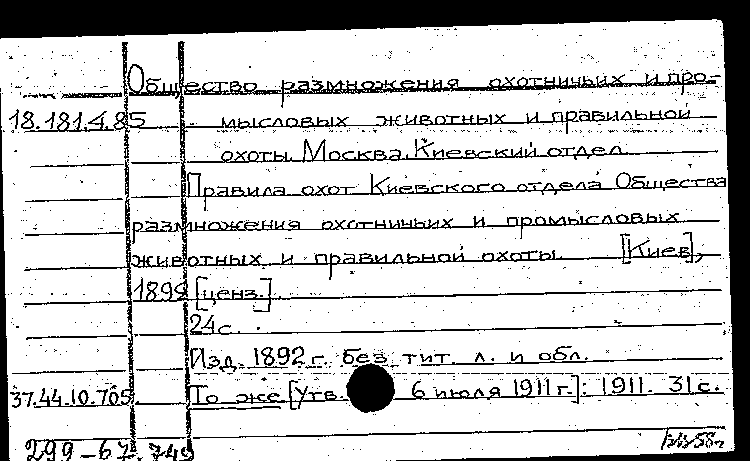 Общество размножения охотничьих и про-
18.181.4.85 мысловых животных и правильной
охоты. Москва. Киевский отдел.
Правила охот Киевского отдела Общества
размножения охотничьих и промысловых
животных и правильной охоты. [Киев],
1899 [ценз.].
24с.
Изд. 1892 г. без тит. л. и обл.
37.44.10.705. То же [Утв. 6 июля 1911 г.]: 1911. 31с.
299-67.749